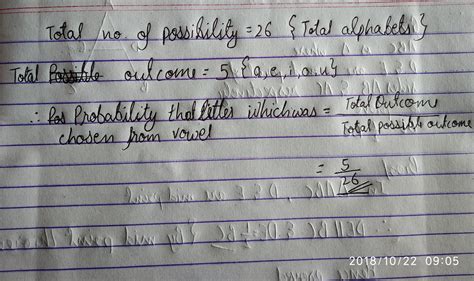 Total no. of possibility = 26 { Total alphabets }
Total outcome = 5 { a, e, i, o, u }
∴ Probability that letter which was = Total Outcome / Total possible outcome
chosen from vowel
= 5/26
2018/10/22 09:05